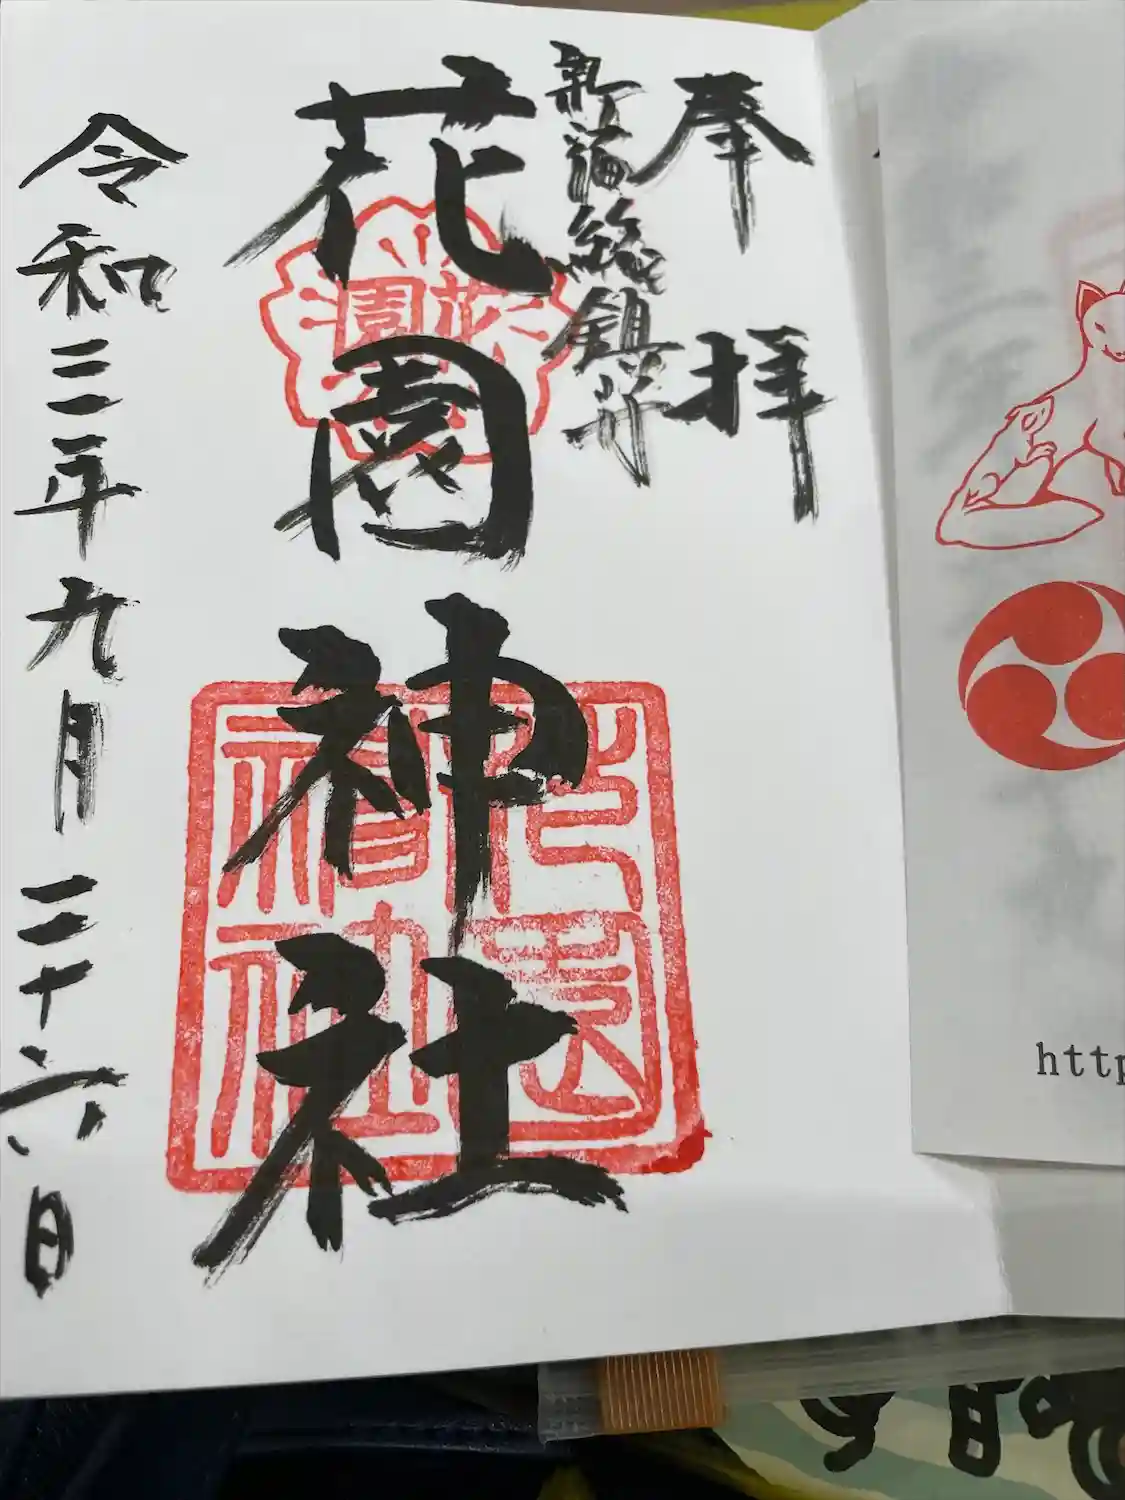 奉拝
新宿総鎮守
花園神社
花園
花園神社
令和三年九月二十六日
http